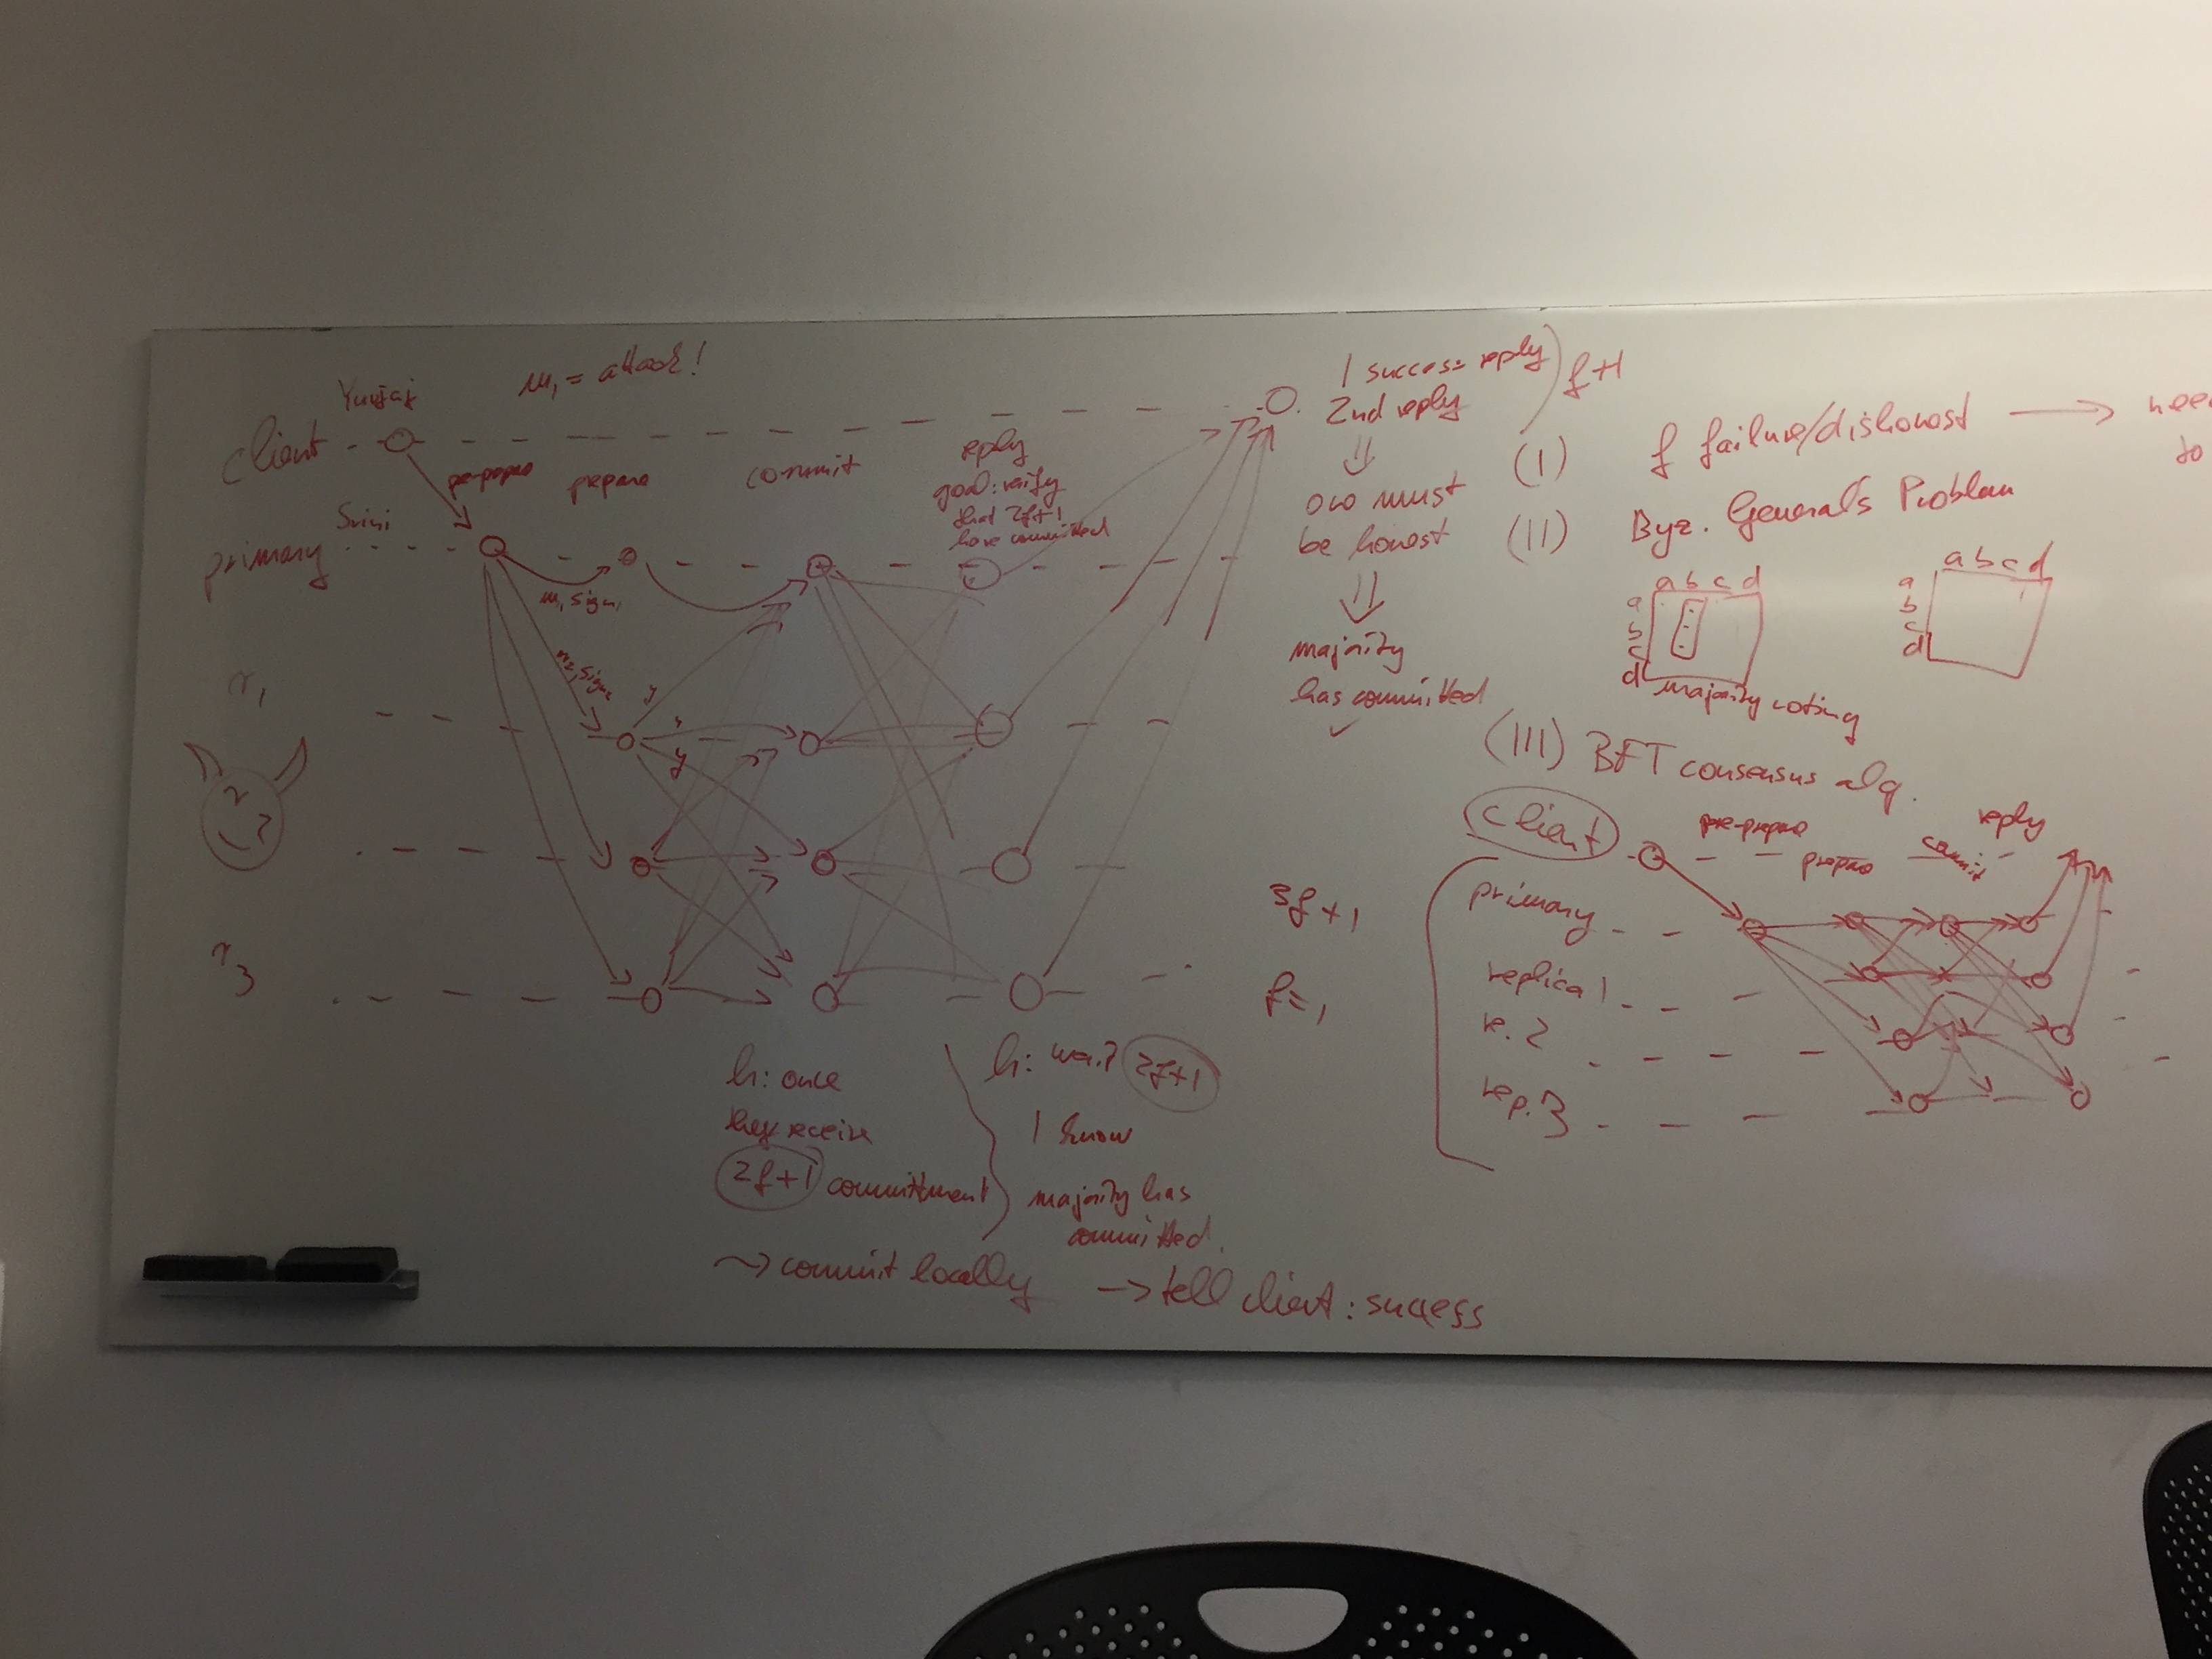 m₁ = attack!
client
pre-prepare
prepare
commit
reply
goal: verify
that 2f+1
have committed
primary
Srini
m, sign,
m₂, sign₂
r₁
y
y
r₃
h: once
they receive
2f+1 commitment
~> commit locally
h: wait 2f+1
I know
majority has
committed.
-> tell client: success
1 success reply
2nd reply
f+1
⇓
one must
be honest
⇓
majority
has committed
✓
3f+1
f=1
(I) f failure/dishonest ->
to
(II) Byz. General's Problem
a b c d
a
b
c
d
majority voting
a b c d
a
b
c
d
(III) BFT consensus alg.
client
pre-prepare
prepare
commit
reply
primary
replica 1
re. 2
rep. 3